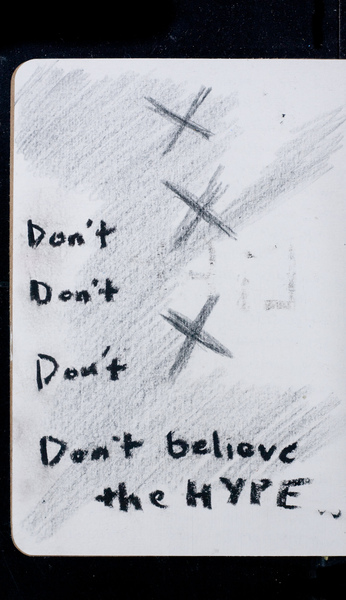 Don't
Don't
Don't
Don't believe
the HYPE..